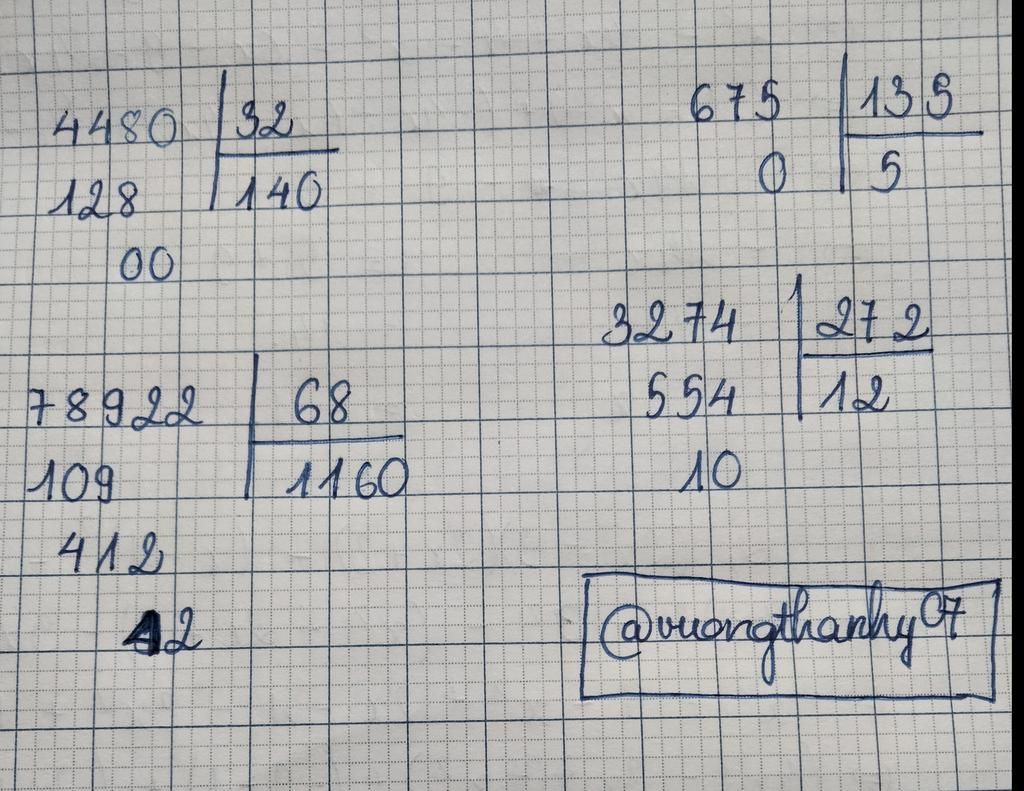 4480 32
128 140
00
675 135
0 5
78922 68
109 1160
412
42
3274 272
554 12
10
@vuongthanhy07